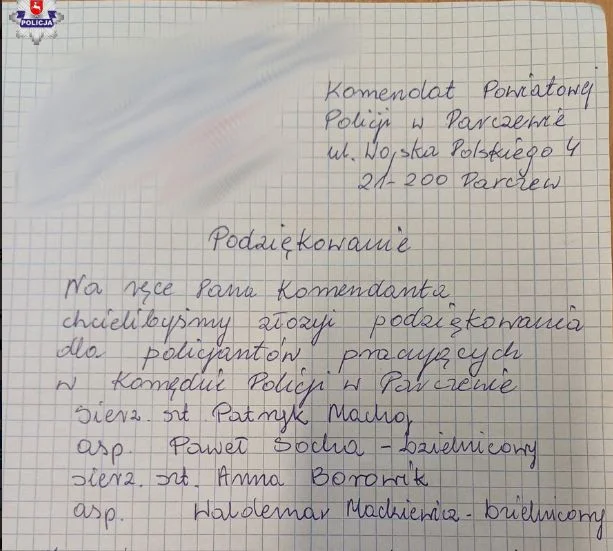 POLICJA
Komendat Powiatowej
Policji w Parczewie
ul. Wojska Polskiego 4
21-200 Parczew
Podziękowanie
Na ręce Pana Komendanta
chcielibyśmy złozyi podziękowania
dla policjantów pracujących
w Komędzie Policji w Parczewie
sierz. szt. Patryk Machoj
asp. Paweł Socha - dzielnicowy
sierz. szt. Anna Borowik
asp. Waldemar Mackiewicz - dzielnicowy